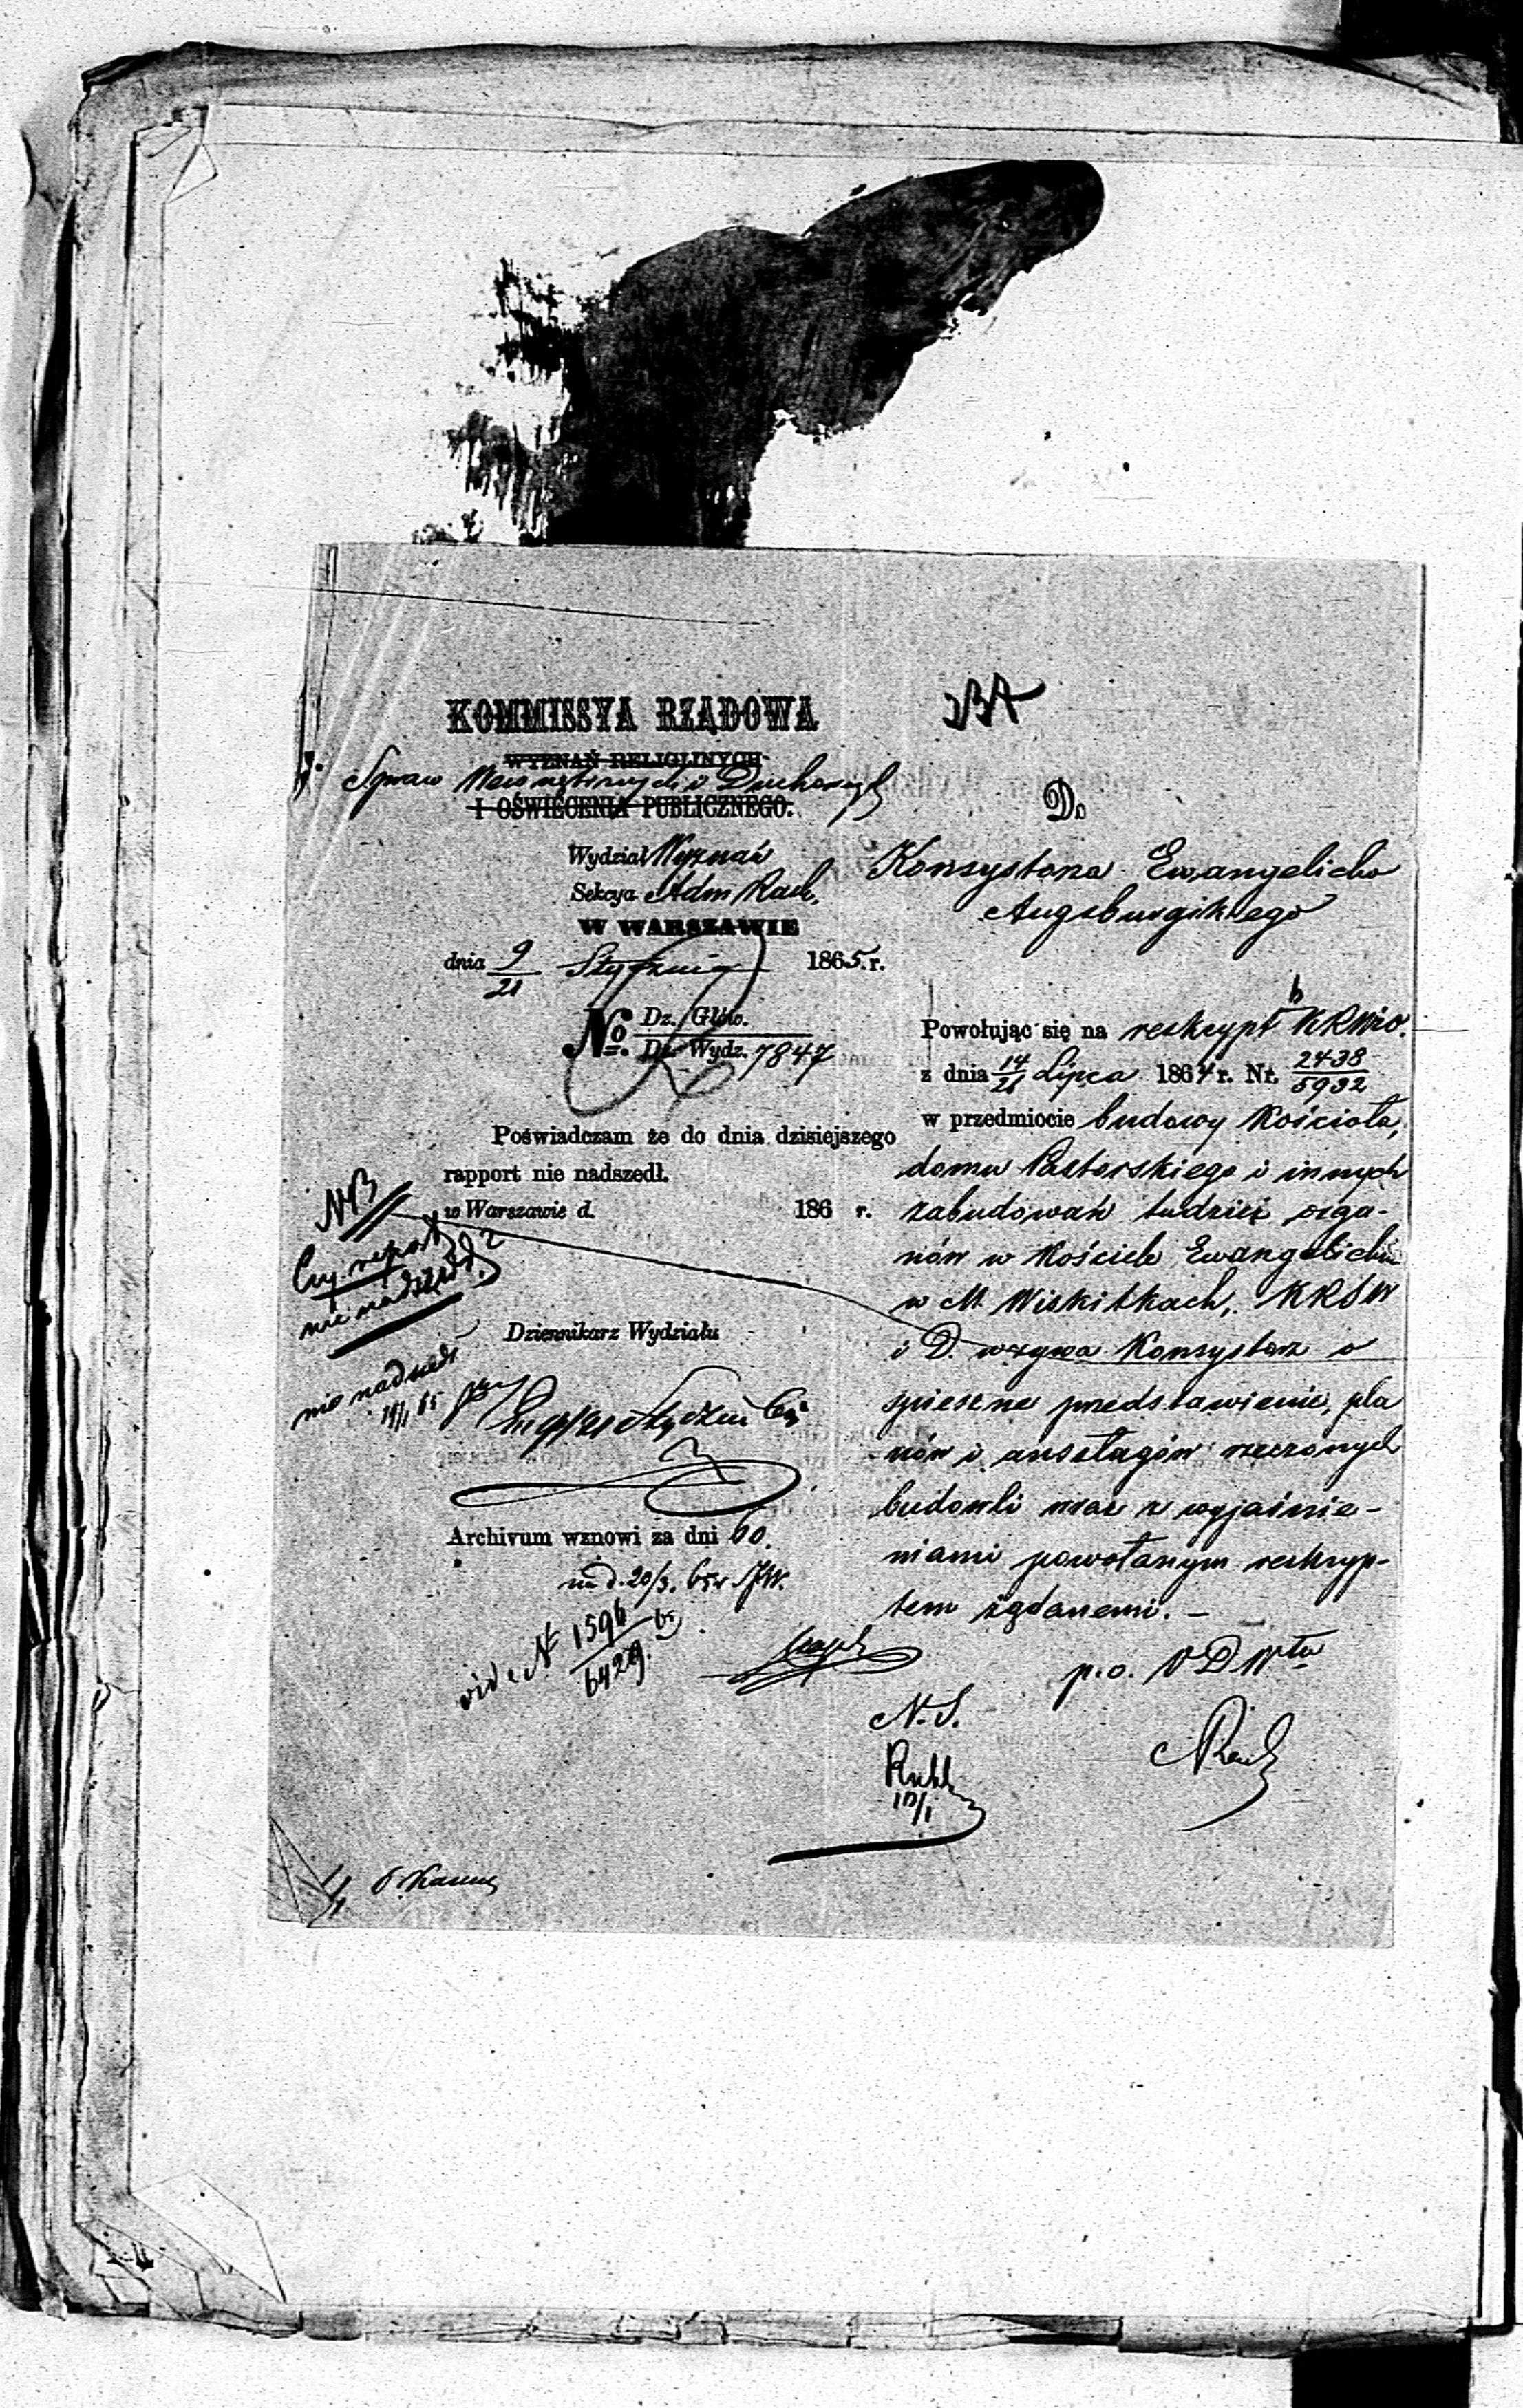 KOMMISSYA RZĄDOWA
WYZNAŃ RELIGIJNYCH
Spraw Wewnętrznych i Duchownych
I OŚWIECENIA PUBLICZNEGO.
Wydział Wyznań
Sekcya Adm Rach.
W WARSZAWIE
dnia 9/21 Stycznia 1865. r.
No. Dz. Głów.
Dz. Wydz. 7847
Poświadczam że do dnia dzisiejszego
rapport nie nadszedł.
w Warszawie d. 186 r.
NB
Czy raport
nie nadszedł?
nie nadszedł
Dziennikarz Wydziału
Archivum wznowi za dni 60.
na d. 20/3. 65 r
vide N 1596/6429. 65
Do
Konsystorza Ewangelicko
Augsburgskiego
b
Powołując się na reskrypt KRWiO.
z dnia 14/26 Lipca 1864 r. Nr. 2438/5932
w przedmiocie budowy Kościoła,
domu Pastorskiego i innych
zabudowań tudzież orga-
nów w Kościele Ewangelickim
w M. Wiskitkach, KRSW
i D. wzywa Konsystorz o
spieszne przedstawienie, pla
nów i anszlagów rzeczonych
budowli wraz z wyjaśnie-
niami powołanym reskryp-
tem żądanemi. –
p.o. V D Włu
N. S.